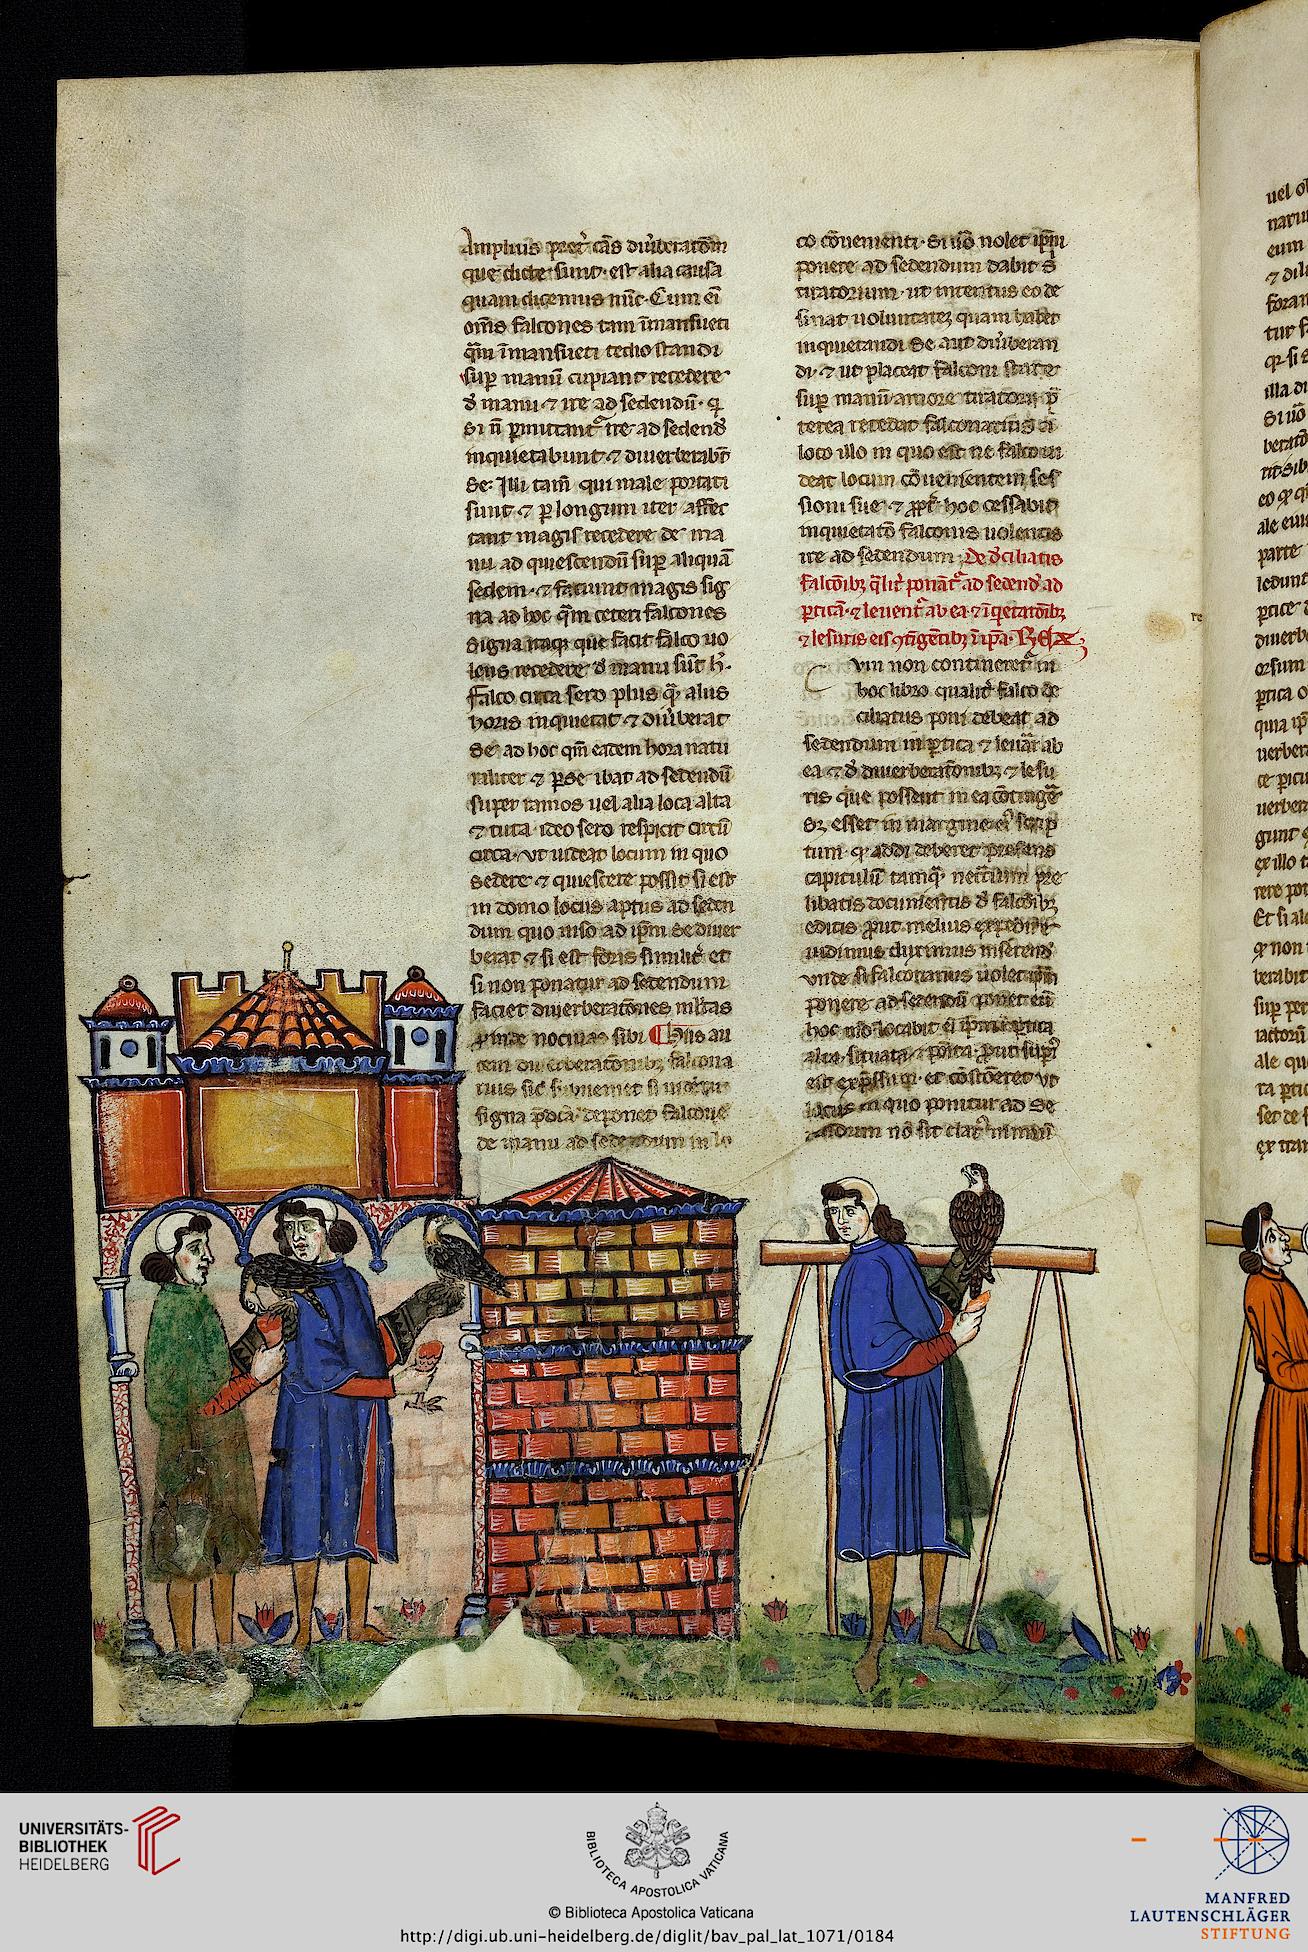 Amplius pret̉ cās diũberatōm
que dicte sunt· est alia causa
quam dicemus nūc· Cum eī
om̄s falcones tam īmansueti
q̄m īmansueti tedio standi
suꝑ manū cupiant recedere
ꝺ̉ manu· ⁊ ire ad sedendū·
si ñ ꝑmittant᷑ ire ad sedend̉
inquietabunt· ⁊ diuerberabūt
se· Illi tam̄ qui male portati
sunt ⁊ ꝑ longum iter affec
tant magis recedere de ma
nu ad quiescendū suꝑ aliquā
sedem· ⁊ faciunt magis sig
na ad hoc q̄m ceteri falcones
Signa itaqꝫ que facit falco uo
lens recedere ꝺ̉ manu sūt h̉·
Falco circa sero plus q̄ꝫ aliis
horis inquietat ⁊ diũberat
se· ad hoc qm̄ eadem hora natu
raliter ⁊ ꝑ se ibat ad sedendū
super ramos uel alia loca alta
⁊ tuta· ideo sero respicit circū
circa· ut uideat locum in quo
sedere ⁊ quiescere possit si est
in domo locus aptus ad seden
dum quo uiso ad ip̄m se diuer
berat ⁊ si est foris similit̉ et
si non ponatur ad sedendum
faciet diuerberatōnes m̄ltas
ꝓinde nociuas sibi Hiis au
tem diuerberatōnibꝫ falcona
rius sic subueniet si uideat
signa p̄dc̄a· deponet falconē
de manu ad sedendum in lo
co cōuenienti· Si ũo nolet ip̄m
ponere ad sedendum dabit ei
tiratorium· ut intentus eo de
sinat uoluntatē quam habet
inquietandi se aut diũberan
di· ⁊ ut placeat falconi stare
suꝑ manū amore tiratorii p̄
terea recedat falconarius a
loco illo in quo est ne falco ui
deat locum cōuenientem ses
sioni sue· ⁊ ꝓpt̉ hoc cessabit
inquietatō falconis uolentis
ire ad sedendum· De ꝺ̉ciliatis
falcōibꝫ q̄lit̉ ponāt᷑ ad sedend̉ ad
ꝑticā· ⁊ leuent᷑ ab ea· ⁊ īq̇etatōibꝫ
⁊ lesuris eis ꝯtīgētibꝫ ī ip̄a· REX
Cum non contineret᷑ in
hoc libro qualit̉ falco de
ciliatus poni debeat ad
sedendum in ꝑtica ⁊ leuari ab
ea ⁊ ꝺ̉ diuerberatōnibꝫ ⁊ lesu
ris que possent in ea cōtinge
sꝫ esset in margine eī scrip
tum· ꝙ addi deberet presens
capitulū tamqꝫ necc̄ium pre
libatis documentis ꝺ̉ falcōibꝫ
editis ꝓut melius expedire
uidimus duximus inserend̉
vnde si falconarius uolet ip̄m
ponere ad sedendū ponet eū
hoc mō locabit ei ip̄m in ꝑtica
alta· situata ⁊ posita· ꝓut sup̉
est exp̄ssum· et cōsideret ut
locus in quo ponitur ad se
dendum nō sit clar᷒ nimium
UNIVERSITÄTS-
BIBLIOTHEK
HEIDELBERG
BIBLIOTECA APOSTOLICA VATICANA
© Biblioteca Apostolica Vaticana
http://digi.ub.uni-heidelberg.de/diglit/bav_pal_lat_1071/0184
MANFRED
LAUTENSCHLÄGER
STIFTUNG